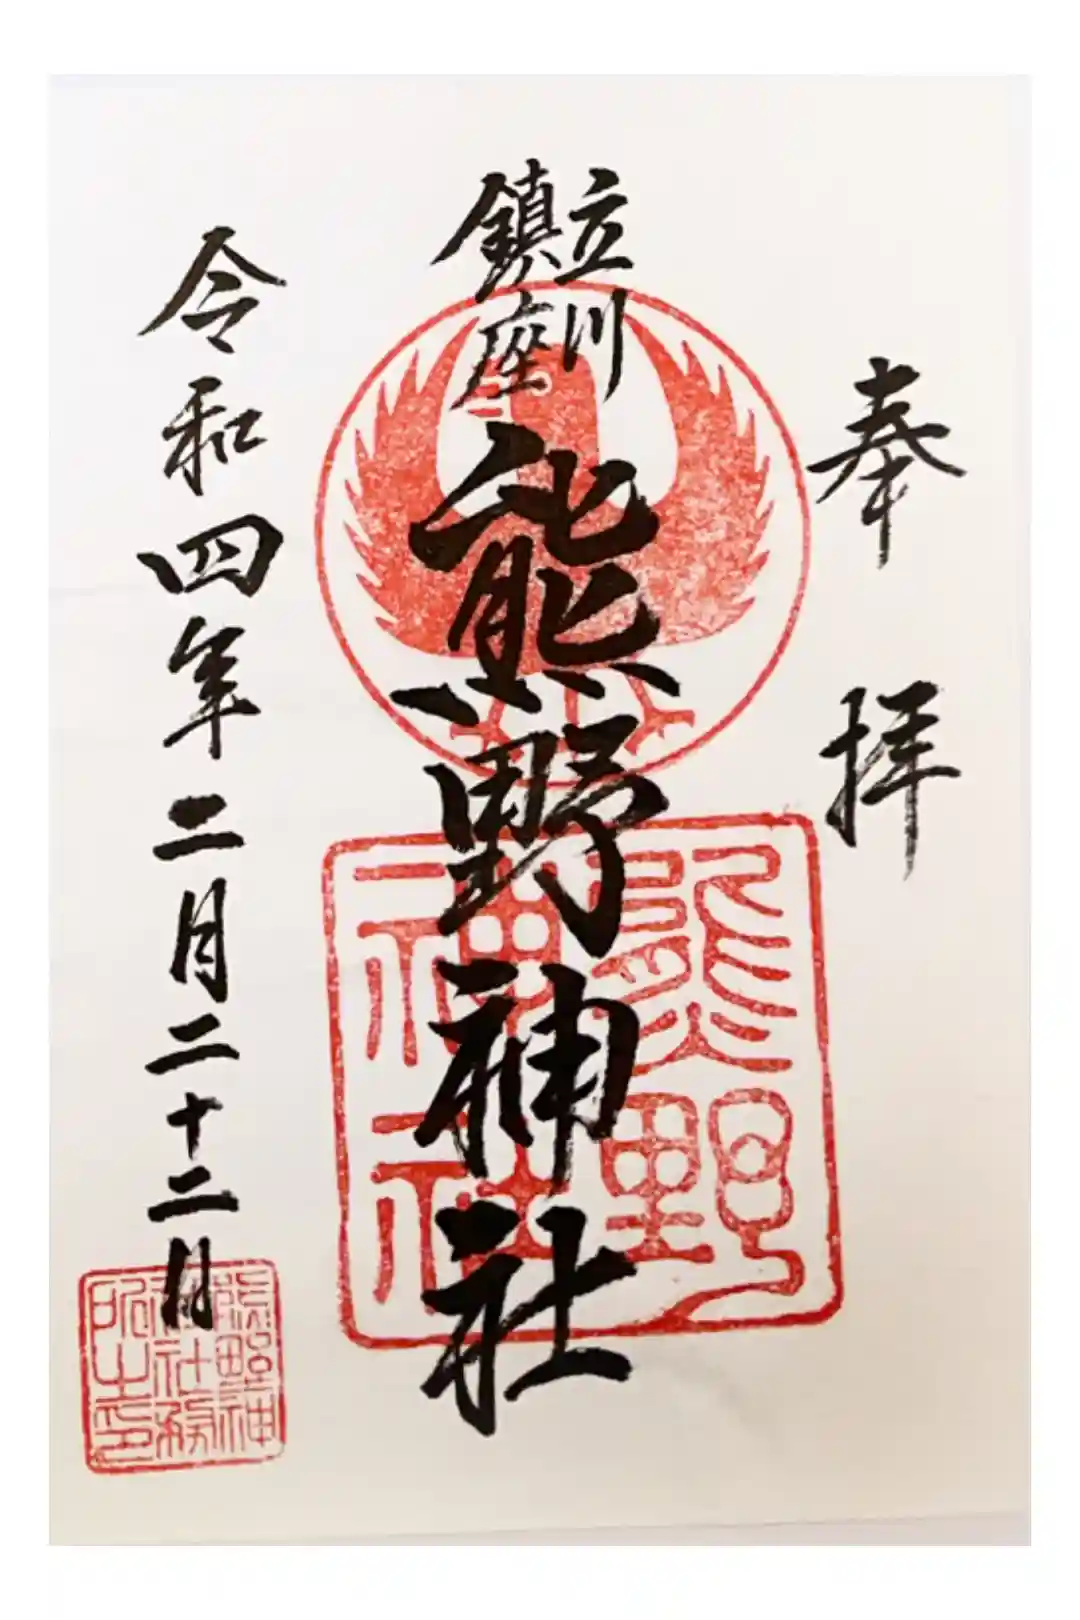 奉拝
立川
鎮座
熊野神社
熊野
神社
令和四年二月二十二日
熊野神
社社務
所之印